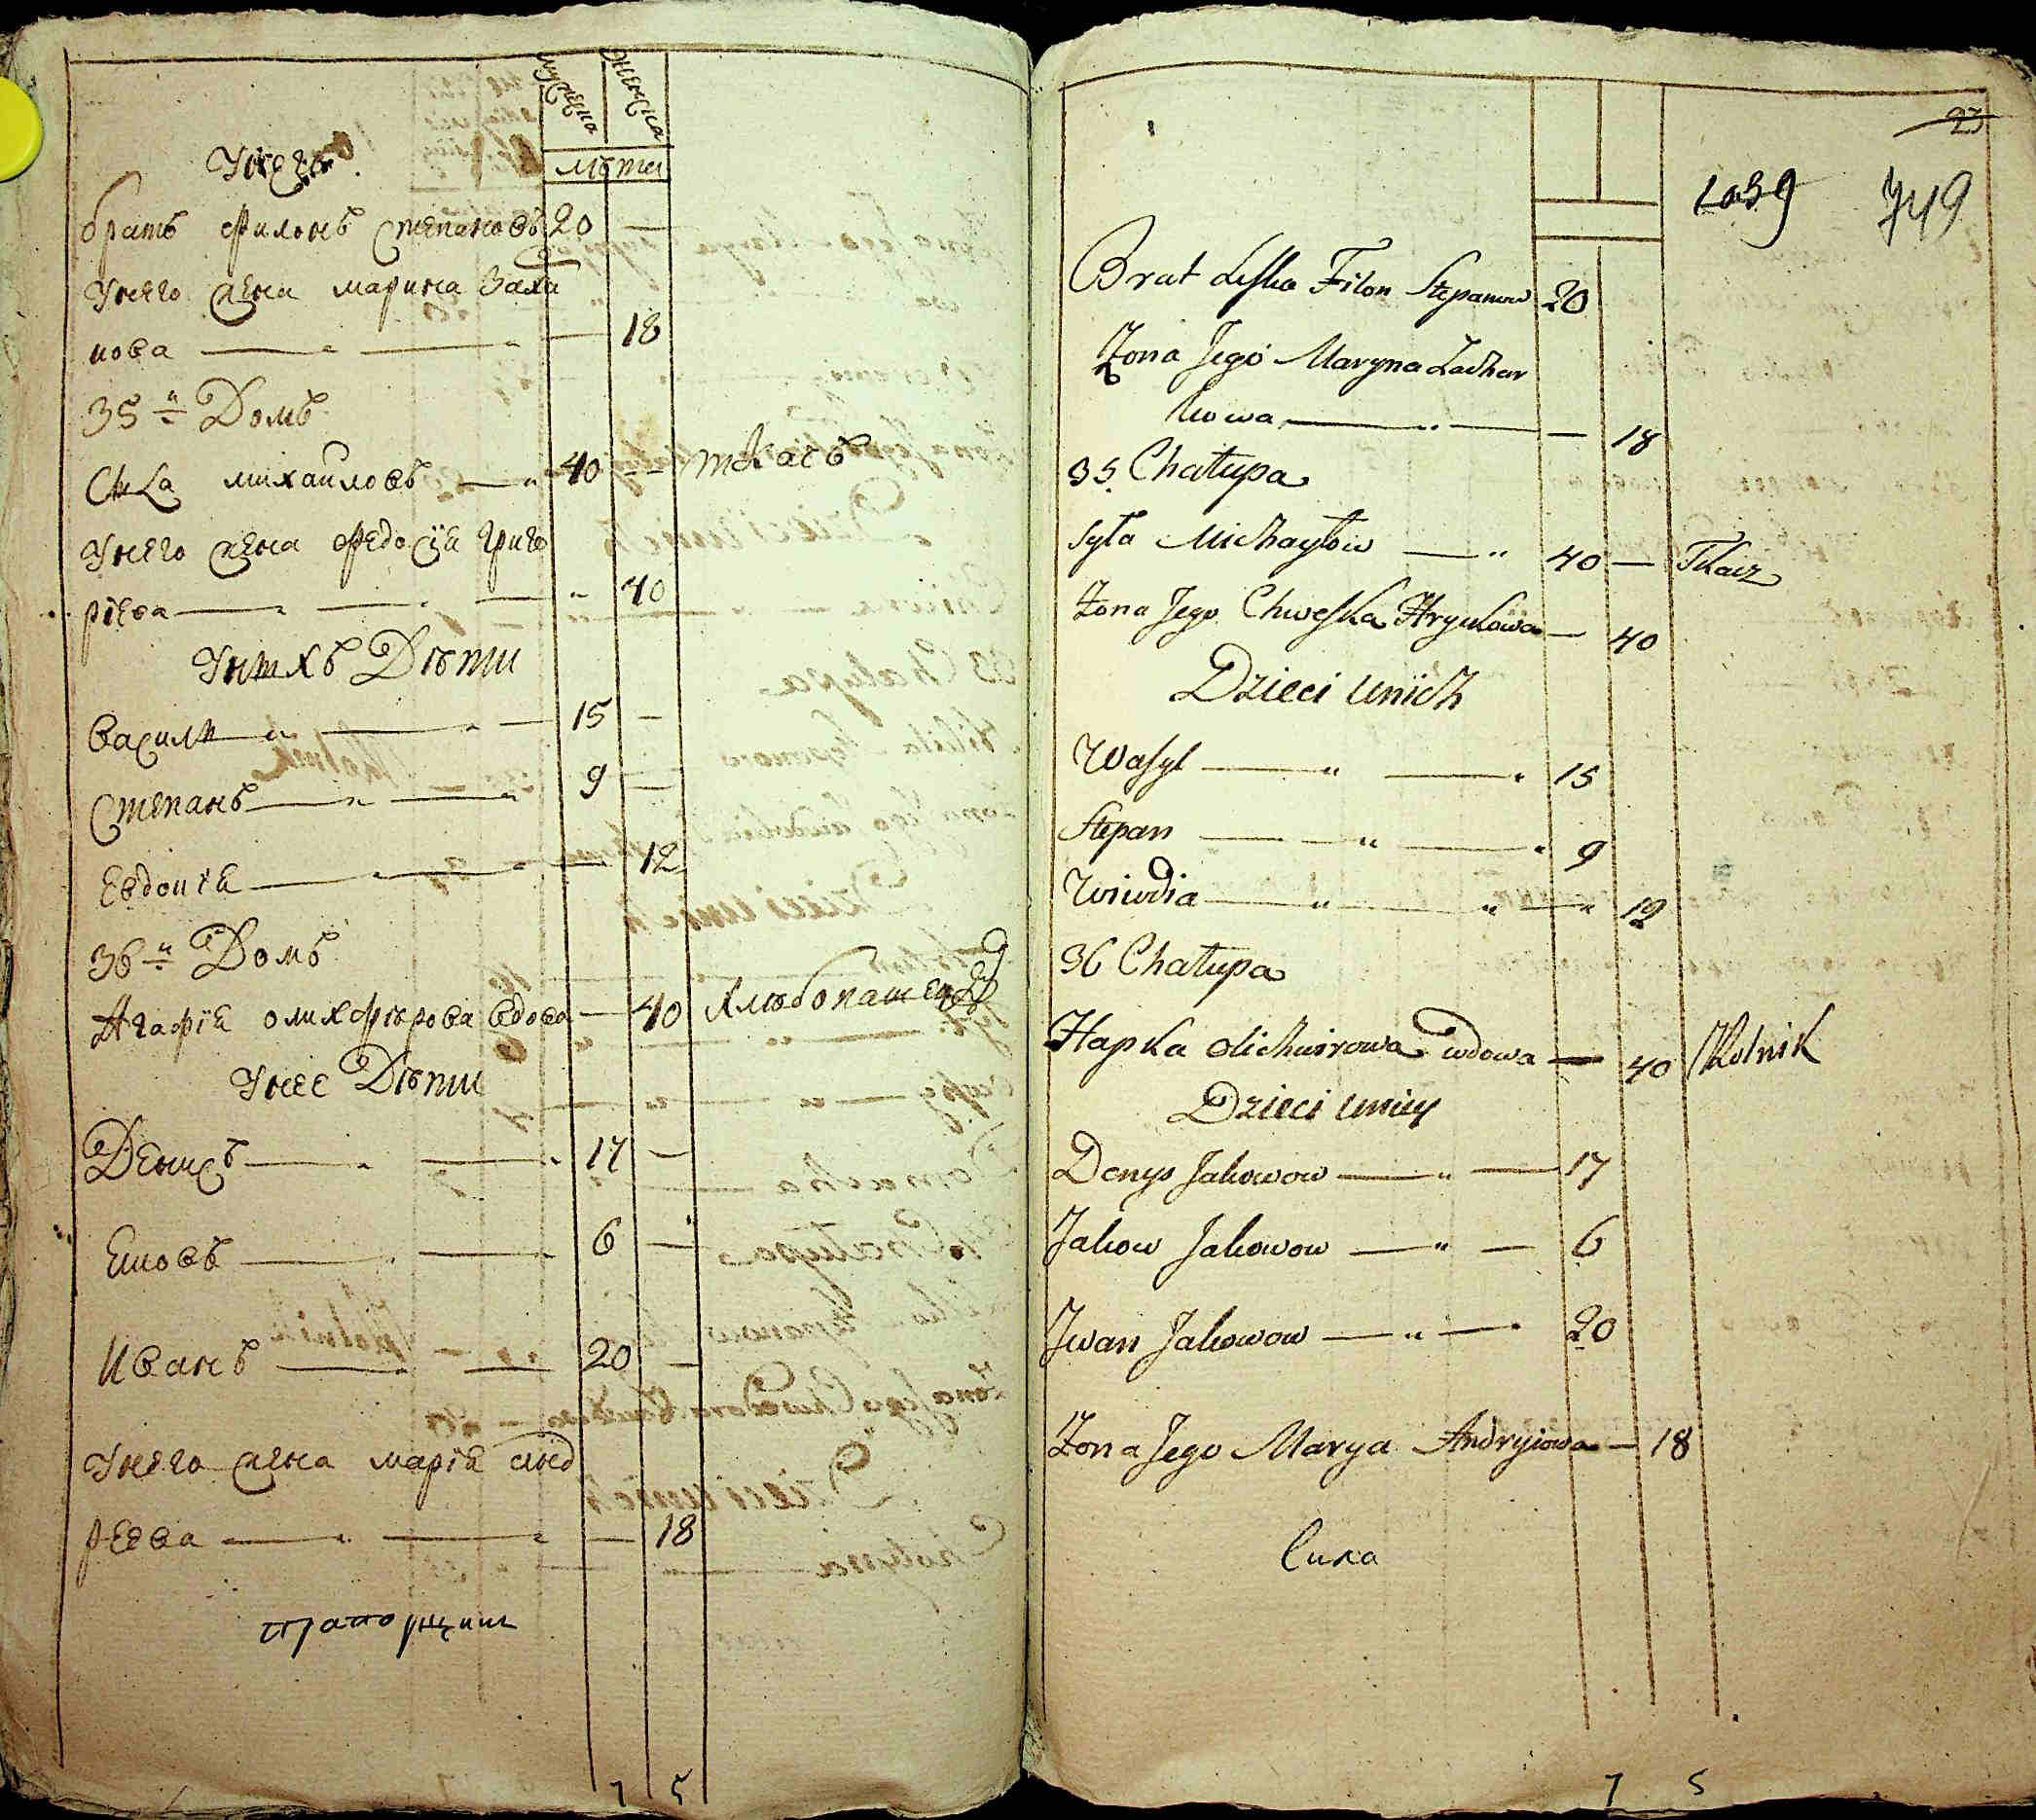 мужеска женска
лѣты
Унего
братъ Филонъ Степановъ 20 —
Унего жена марина Заха
нова — — — 18
35й Домъ
Сила михайловъ — 40 — ткачъ
Унего жена Федосїя григо
рїева — — — 40
Унихъ Дѣти
василий — — 15 —
Степанъ — — 9 —
Евдокїя — — — 12
36й Домъ
Агафїя олихфѣрова вдова — 40 Хлѣбопашецъ
Унее Дѣти
Денисъ — — 17 —
Яковъ — — 6 —
Иванъ — — 20 —
Унего жена марїя анд
реева — — — 18
прапорщикъ
7 5
23
1039 749
Brat Leska Filon Stepanow 20
Zona Jego Maryna Zachar
kowa — — — 18
35 Chałupa
Syła Michayłow — 40 — Tkacz
Zona Jego Chweska Hrynkowa — 40
Dzieci unich
Wasyl — — 15
Stepan — — 9
Wiwdia — — — 12
36 Chałupa
Hapka Olichwirowa wdowa — 40 Rolnik
Dzieci uniey
Denys Jakowow — — 17
Jakow Jakowow — — 6
Jwan Jakowow — — 20
Zona Jego Marya Andryiowa — 18
7 5